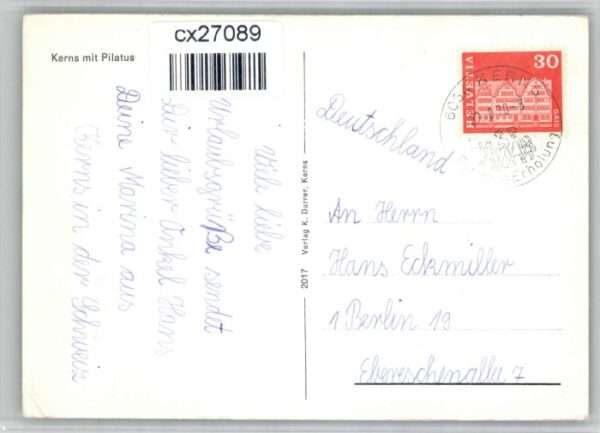 cx27089
Kerns mit Pilatus
Viele liebe
Urlaubsgrüße sendet
Dir lieber Onkel Hans
Deine Marina aus
Kerns in der Schweiz
2017 Verlag K. Durrer, Kerns
HELVETIA
30
KERNS
Erholung
Deutschland
An Herrn
Hans Eckmiller
1 Berlin 19
Ebereschenallee 7